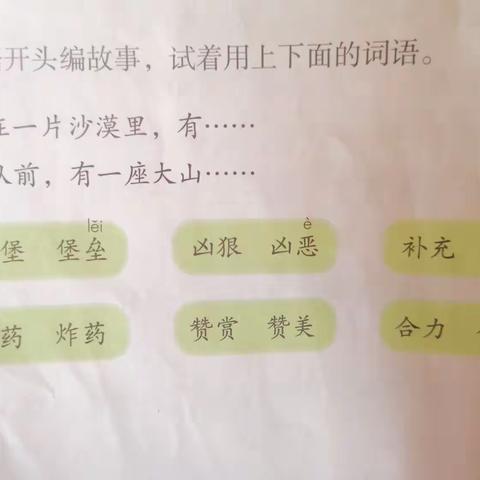 开头编故事，试着用上下面的词语。
在一片沙漠里，有……
从前，有一座大山……
lěi è
堡 堡垒 凶狠 凶恶 补充
药 炸药 赞赏 赞美 合力